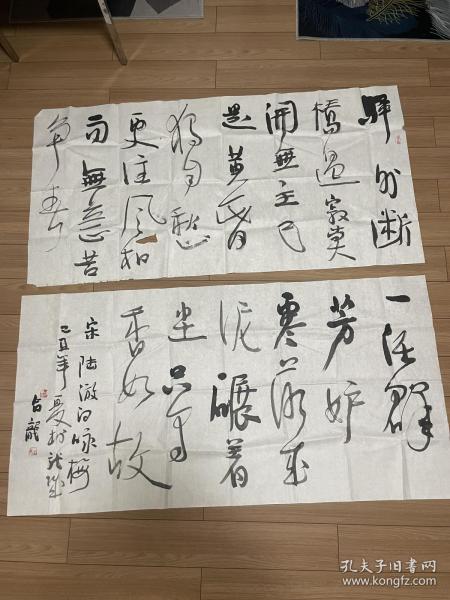 驛外断
橋邊寂寞
開無主已
是黄昏
獨自愁
更注风和
雨無意苦
争春
一任群
芳妒
零落成
泥碾着
尘只有
香如故
宋陆游词咏梅
己丑年夏於
占龍
孔夫子旧书网
www.kongfz.com